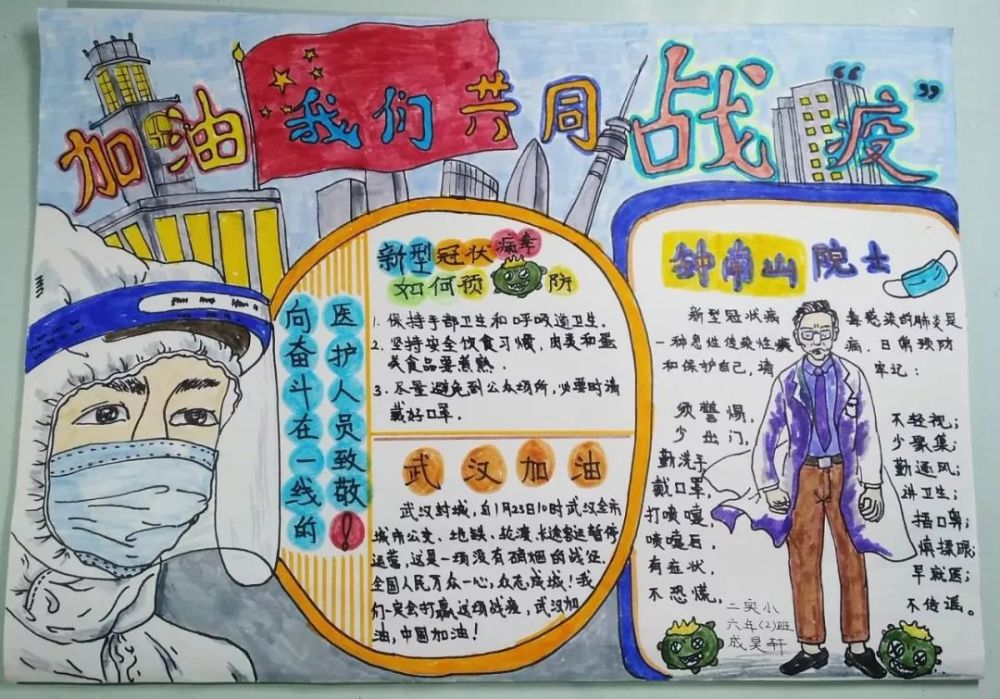 加油 我们共同战“疫”
向奋斗在一线的
医护人员致敬!
新型冠状病毒
如何预防
1. 保持手部卫生和呼吸道卫生.
2. 坚持安全饮食习惯, 肉类和蛋
类食品要煮熟.
3. 尽量避免到公众场所, 必要时请
戴好口罩.
武汉加油
武汉封城, 自1月23日10时武汉全市
城市公交、地铁、轮渡、长途客运暂停
运营, 这是一项没有硝烟的战征.
全国人民万众一心, 众志成城! 我
们一定会打赢这场战疫, 武汉加
油, 中国加油!
钟南山院士
新型冠状病毒感染的肺炎是
一种急性传染性疾病, 日常预防
和保护自己, 请牢记:
须警惕, 不轻视;
少出门, 少聚集;
勤洗手, 勤通风;
戴口罩, 讲卫生;
打喷嚏, 捂口鼻;
喷嚏后, 慎揉眼;
有症状, 早就医;
不恐慌, 不传谣。
二实小
六年(2)班
成昊轩